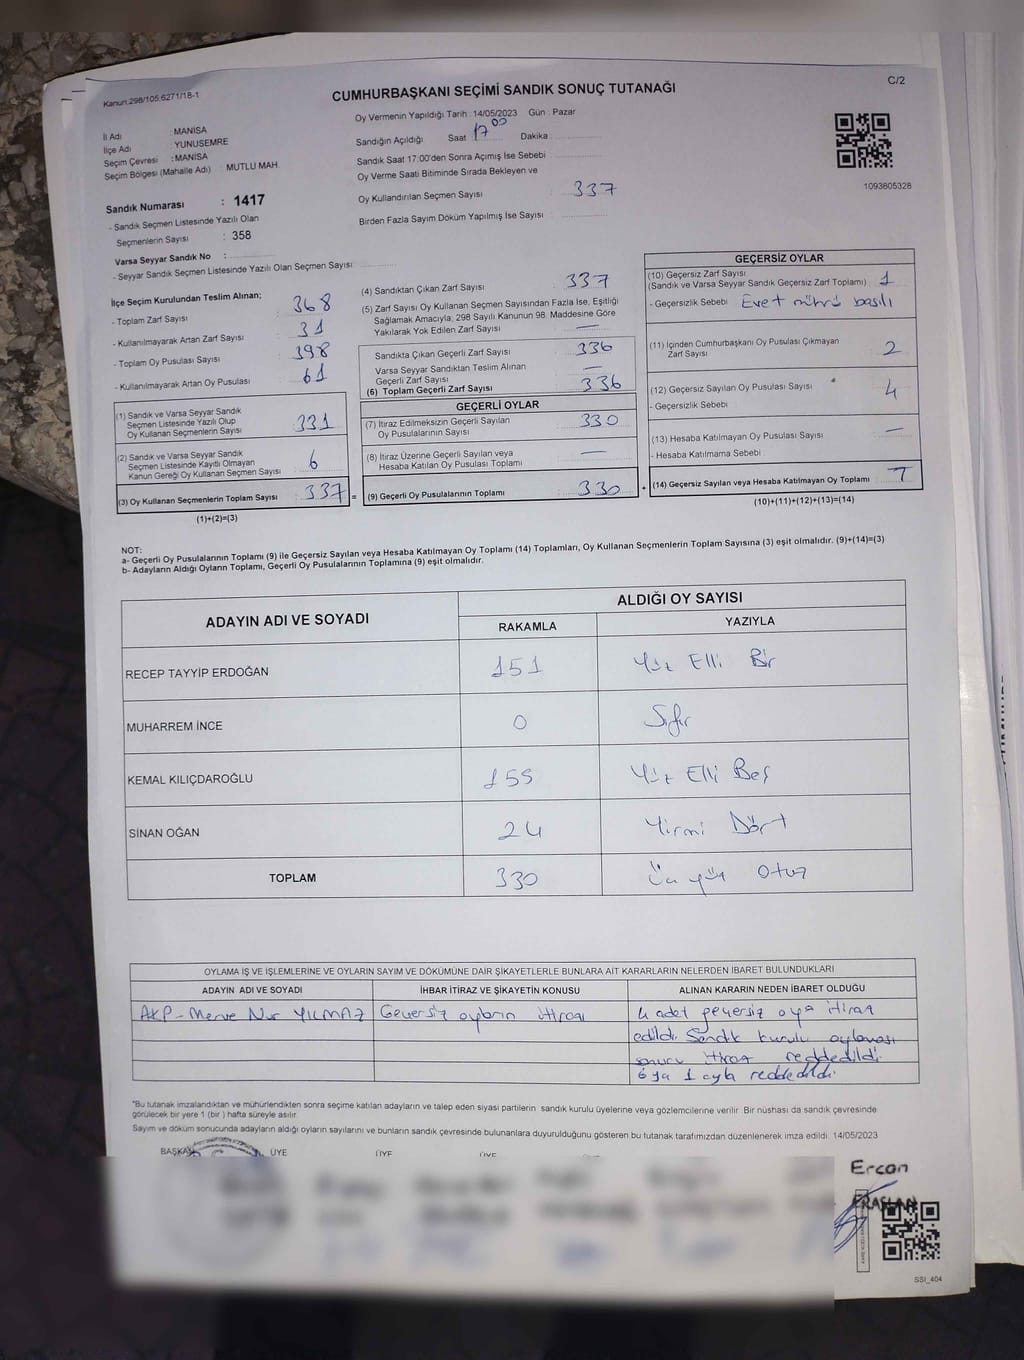 Kanun:298/105;6271/18-1
CUMHURBAŞKANI SEÇİMİ SANDIK SONUÇ TUTANAĞI
C/2
Oy Vermenin Yapıldığı Tarih : 14/05/2023 Gün : Pazar
İl Adı : MANİSA
İlçe Adı : YUNUSEMRE
Seçim Çevresi : MANİSA
Seçim Bölgesi (Mahalle Adı) : MUTLU MAH.
Sandığın Açıldığı Saat 17 00 Dakika
Sandık Saat 17:00'den Sonra Açımış İse Sebebi
Oy Verme Saati Bitiminde Sırada Bekleyen ve
Oy Kullandırılan Seçmen Sayısı 337
Birden Fazla Sayım Döküm Yapılmış İse Sayısı
1093805328
Sandık Numarası : 1417
- Sandık Seçmen Listesinde Yazılı Olan
Seçmenlerin Sayısı : 358
Varsa Seyyar Sandık No :
- Seyyar Sandık Seçmen Listesinde Yazılı Olan Seçmen Sayısı:
İlçe Seçim Kurulundan Teslim Alınan;
- Toplam Zarf Sayısı : 368
- Kullanılmayarak Artan Zarf Sayısı : 31
- Toplam Oy Pusulası Sayısı : 398
- Kullanılmayarak Artan Oy Pusulası : 61
(1) Sandık ve Varsa Seyyar Sandık
Seçmen Listesinde Yazılı Olup
Oy Kullanan Seçmenlerin Sayısı : 331
(2) Sandık ve Varsa Seyyar Sandık
Seçmen Listesinde Kayıtlı Olmayan
Kanun Gereği Oy Kullanan Seçmen Sayısı : 6
(3) Oy Kullanan Seçmenlerin Toplam Sayısı : 337 =
(1)+(2)=(3)
(4) Sandıktan Çıkan Zarf Sayısı : 337
(5) Zarf Sayısı Oy Kullanan Seçmen Sayısından Fazla İse, Eşitliği
Sağlamak Amacıyla, 298 Sayılı Kanunun 98. Maddesine Göre
Yakılarak Yok Edilen Zarf Sayısı : —
Sandıkta Çıkan Geçerli Zarf Sayısı : 336
Varsa Seyyar Sandıktan Teslim Alınan
Geçerli Zarf Sayısı : —
(6) Toplam Geçerli Zarf Sayısı : 336
GEÇERLİ OYLAR
(7) İtiraz Edilmeksizin Geçerli Sayılan
Oy Pusulalarının Sayısı : 330
(8) İtiraz Üzerine Geçerli Sayılan veya
Hesaba Katılan Oy Pusulası Toplamı : —
(9) Geçerli Oy Pusulalarının Toplamı : 330 +
GEÇERSİZ OYLAR
(10) Geçersiz Zarf Sayısı
(Sandık ve Varsa Seyyar Sandık Geçersiz Zarf Toplamı) : 1
- Geçersizlik Sebebi : Evet mührü basılı
(11) İçinden Cumhurbaşkanı Oy Pusulası Çıkmayan
Zarf Sayısı : 2
(12) Geçersiz Sayılan Oy Pusulası Sayısı : 4
- Geçersizlik Sebebi
(13) Hesaba Katılmayan Oy Pusulası Sayısı : —
- Hesaba Katılmama Sebebi
(14) Geçersiz Sayılan veya Hesaba Katılmayan Oy Toplamı : 7
(10)+(11)+(12)+(13)=(14)
NOT:
a- Geçerli Oy Pusulalarının Toplamı (9) ile Geçersiz Sayılan veya Hesaba Katılmayan Oy Toplamı (14) Toplamları, Oy Kullanan Seçmenlerin Toplam Sayısına (3) eşit olmalıdır. (9)+(14)=(3)
b- Adayların Aldığı Oyların Toplamı, Geçerli Oy Pusulalarının Toplamına (9) eşit olmalıdır.
ADAYIN ADI VE SOYADI
ALDIĞI OY SAYISI
RAKAMLA YAZIYLA
RECEP TAYYİP ERDOĞAN 151 Yüz Elli Bir
MUHARREM İNCE 0 Sıfır
KEMAL KILIÇDAROĞLU 155 Yüz Elli Beş
SİNAN OĞAN 24 Yirmi Dört
TOPLAM 330 Üç yüz Otuz
OYLAMA İŞ VE İŞLEMLERİNE VE OYLARIN SAYIM VE DÖKÜMÜNE DAİR ŞİKAYETLERLE BUNLARA AİT KARARLARIN NELERDEN İBARET BULUNDUKLARI
ADAYIN ADI VE SOYADI İHBAR İTİRAZ VE ŞİKAYETİN KONUSU ALINAN KARARIN NEDEN İBARET OLDUĞU
AKP-Merve Nur YILMAZ Geçersiz oyların itirazı 4 adet geçersiz oya itiraz
edildi. Sandık kurulu oylaması
sonucu itiraz reddedildi.
6 ya 1 oyla reddedildi.
"Bu tutanak imzalandıktan ve mühürlendikten sonra seçime katılan adayların ve talep eden siyasi partilerin sandık kurulu üyelerine veya gözlemcilerine verilir. Bir nüshası da sandık çevresinde
görülecek bir yere 1 (bir ) hafta süreyle asılır.
Sayım ve döküm sonucunda adayların aldığı oyların sayılarını ve bunların sandık çevresinde bulunanlara duyurulduğunu gösteren bu tutanak tarafımızdan düzenlenerek imza edildi. 14/05/2023
BAŞKAN ÜYE ÜYE ÜYE
Ercan
ERASLAN
SSI_404